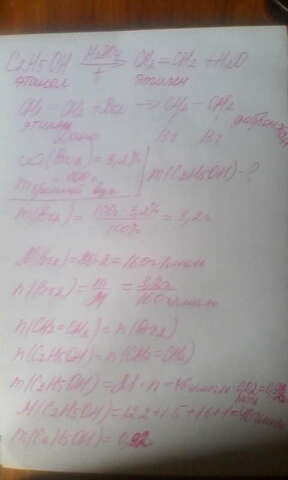 C2H5OH H2SO4 → t CH2 = CH2 + H2O
этанол этилен
CH2 = CH2 + Br2 → CH2 – CH2
этилен Br Br
Дано
ω(Br2) = 3,2%
m(C2H5OH) - ?
m(Br2) = 100г · 3,2% / 100% = 3,2г
M(Br2) = 80·2 = 160 г/моль
n(Br2) = m / M = 3,2г / 160 г/моль
n(CH2=CH2) = n(Br2)
n(C2H5OH) = n(CH2=CH2)
m(C2H5OH) = M · n = 46 г/моль · 0,02 моль = 0,92
M(C2H5OH) = 12·2 + 1·5 + 16 + 1 = 46 г/моль
m(C2H5OH) = 0,92